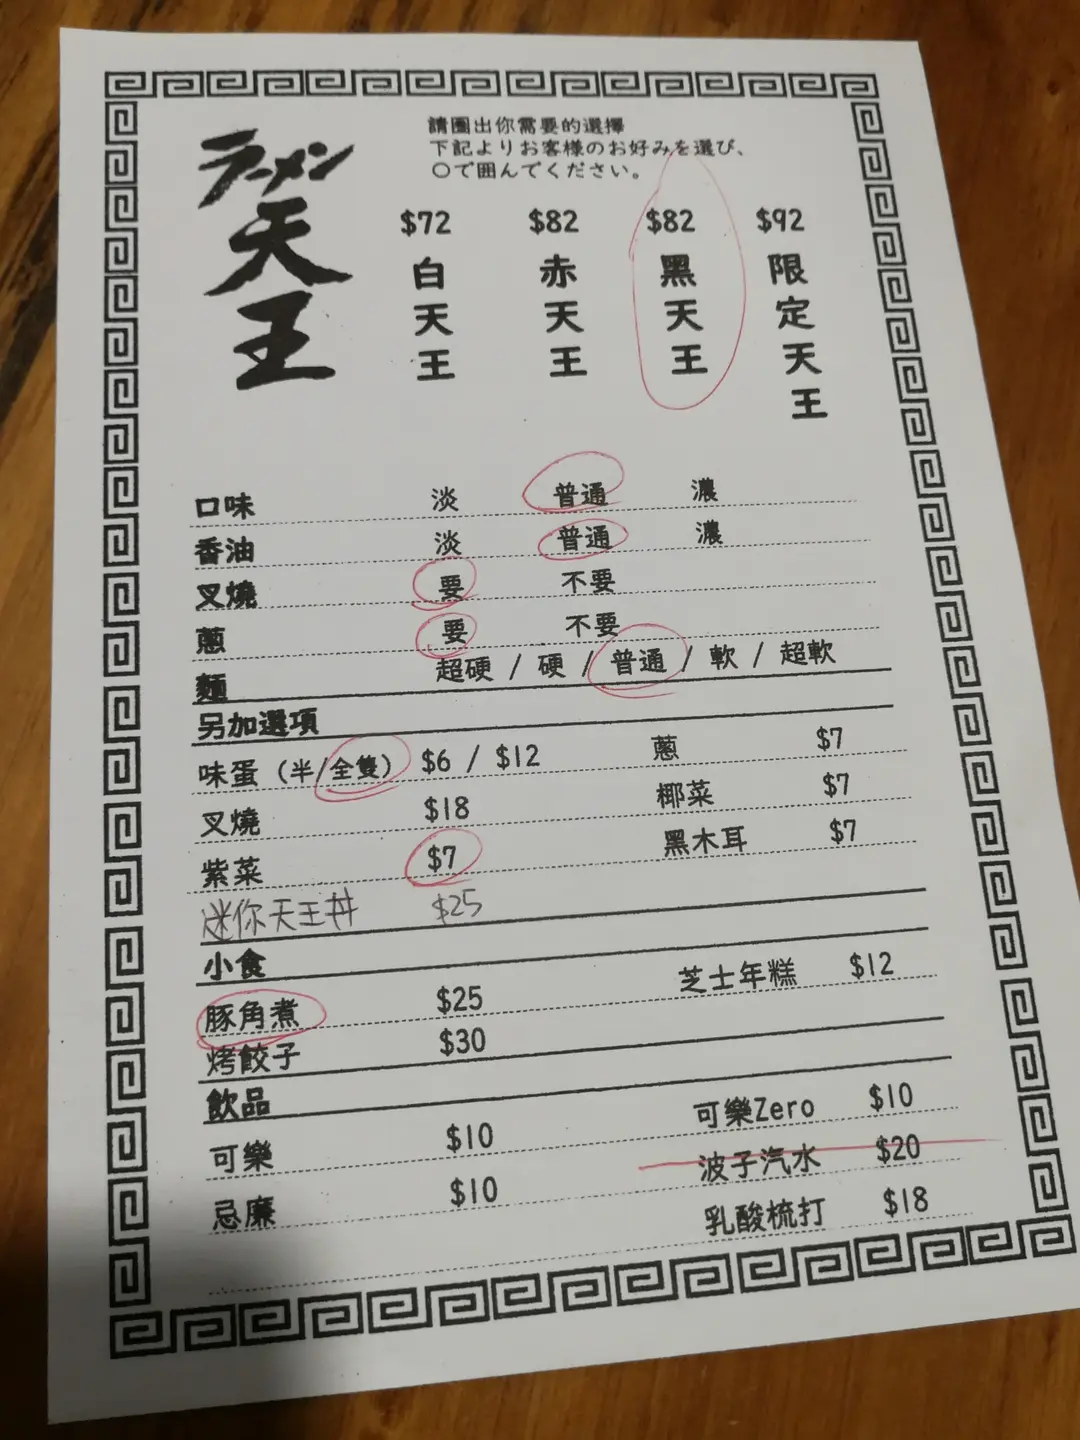 ラーメン
天王
請圈出你需要的選擇
下記よりお客様のお好みを選び、
○で囲んでください。
$72 $82 $82 $92
白天王 赤天王 黑天王 限定天王
口味 淡 普通 濃
香油 淡 普通 濃
叉燒 要 不要
蔥 要 不要
麵 超硬 / 硬 / 普通 / 軟 / 超軟
另加選項
味蛋 (半/全隻) $6 / $12 蔥 $7
叉燒 $18 椰菜 $7
紫菜 $7 黑木耳 $7
迷你天王丼 $25
小食
豚角煮 $25 芝士年糕 $12
烤餃子 $30
飲品
可樂 $10 可樂Zero $10
忌廉 $10 波子汽水 $20
乳酸梳打 $18